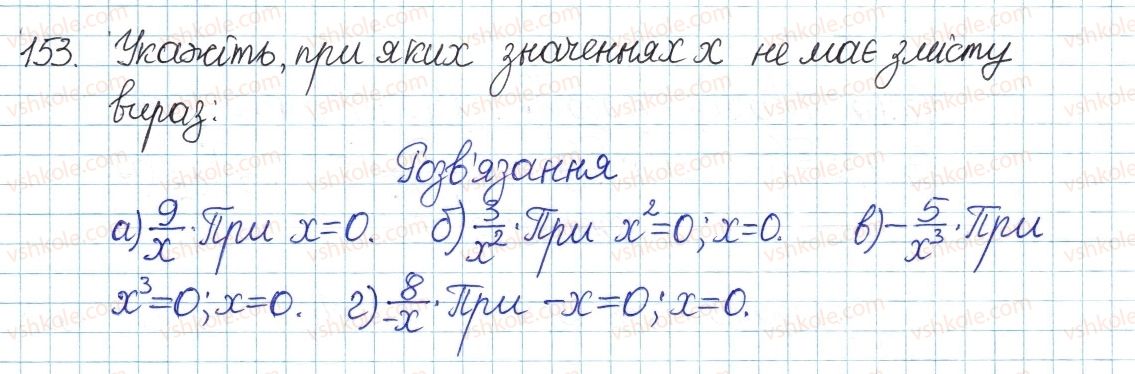 153. Укажіть, при яких значеннях x не має змісту
вираз:
Розв'язання
а) 9/x. При x=0. б) 3/x². При x²=0; x=0. в) -5/x³. При
x³=0; x=0. г) 8/-x. При -x=0; x=0.